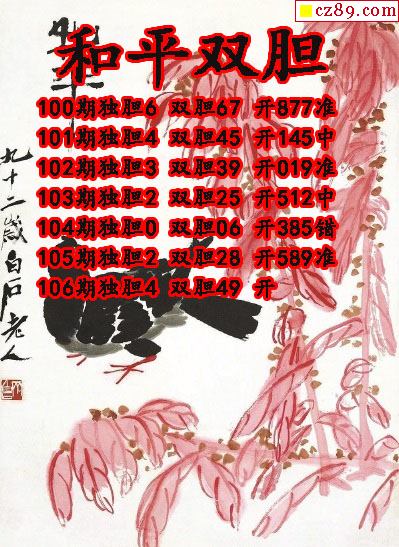 cz89.com
和平双胆
100期独胆6 双胆67 开877准
101期独胆4 双胆45 开145中
102期独胆3 双胆39 开019准
103期独胆2 双胆25 开512中
104期独胆0 双胆06 开385错
105期独胆2 双胆28 开589准
106期独胆4 双胆49 开
九十二岁白石老人